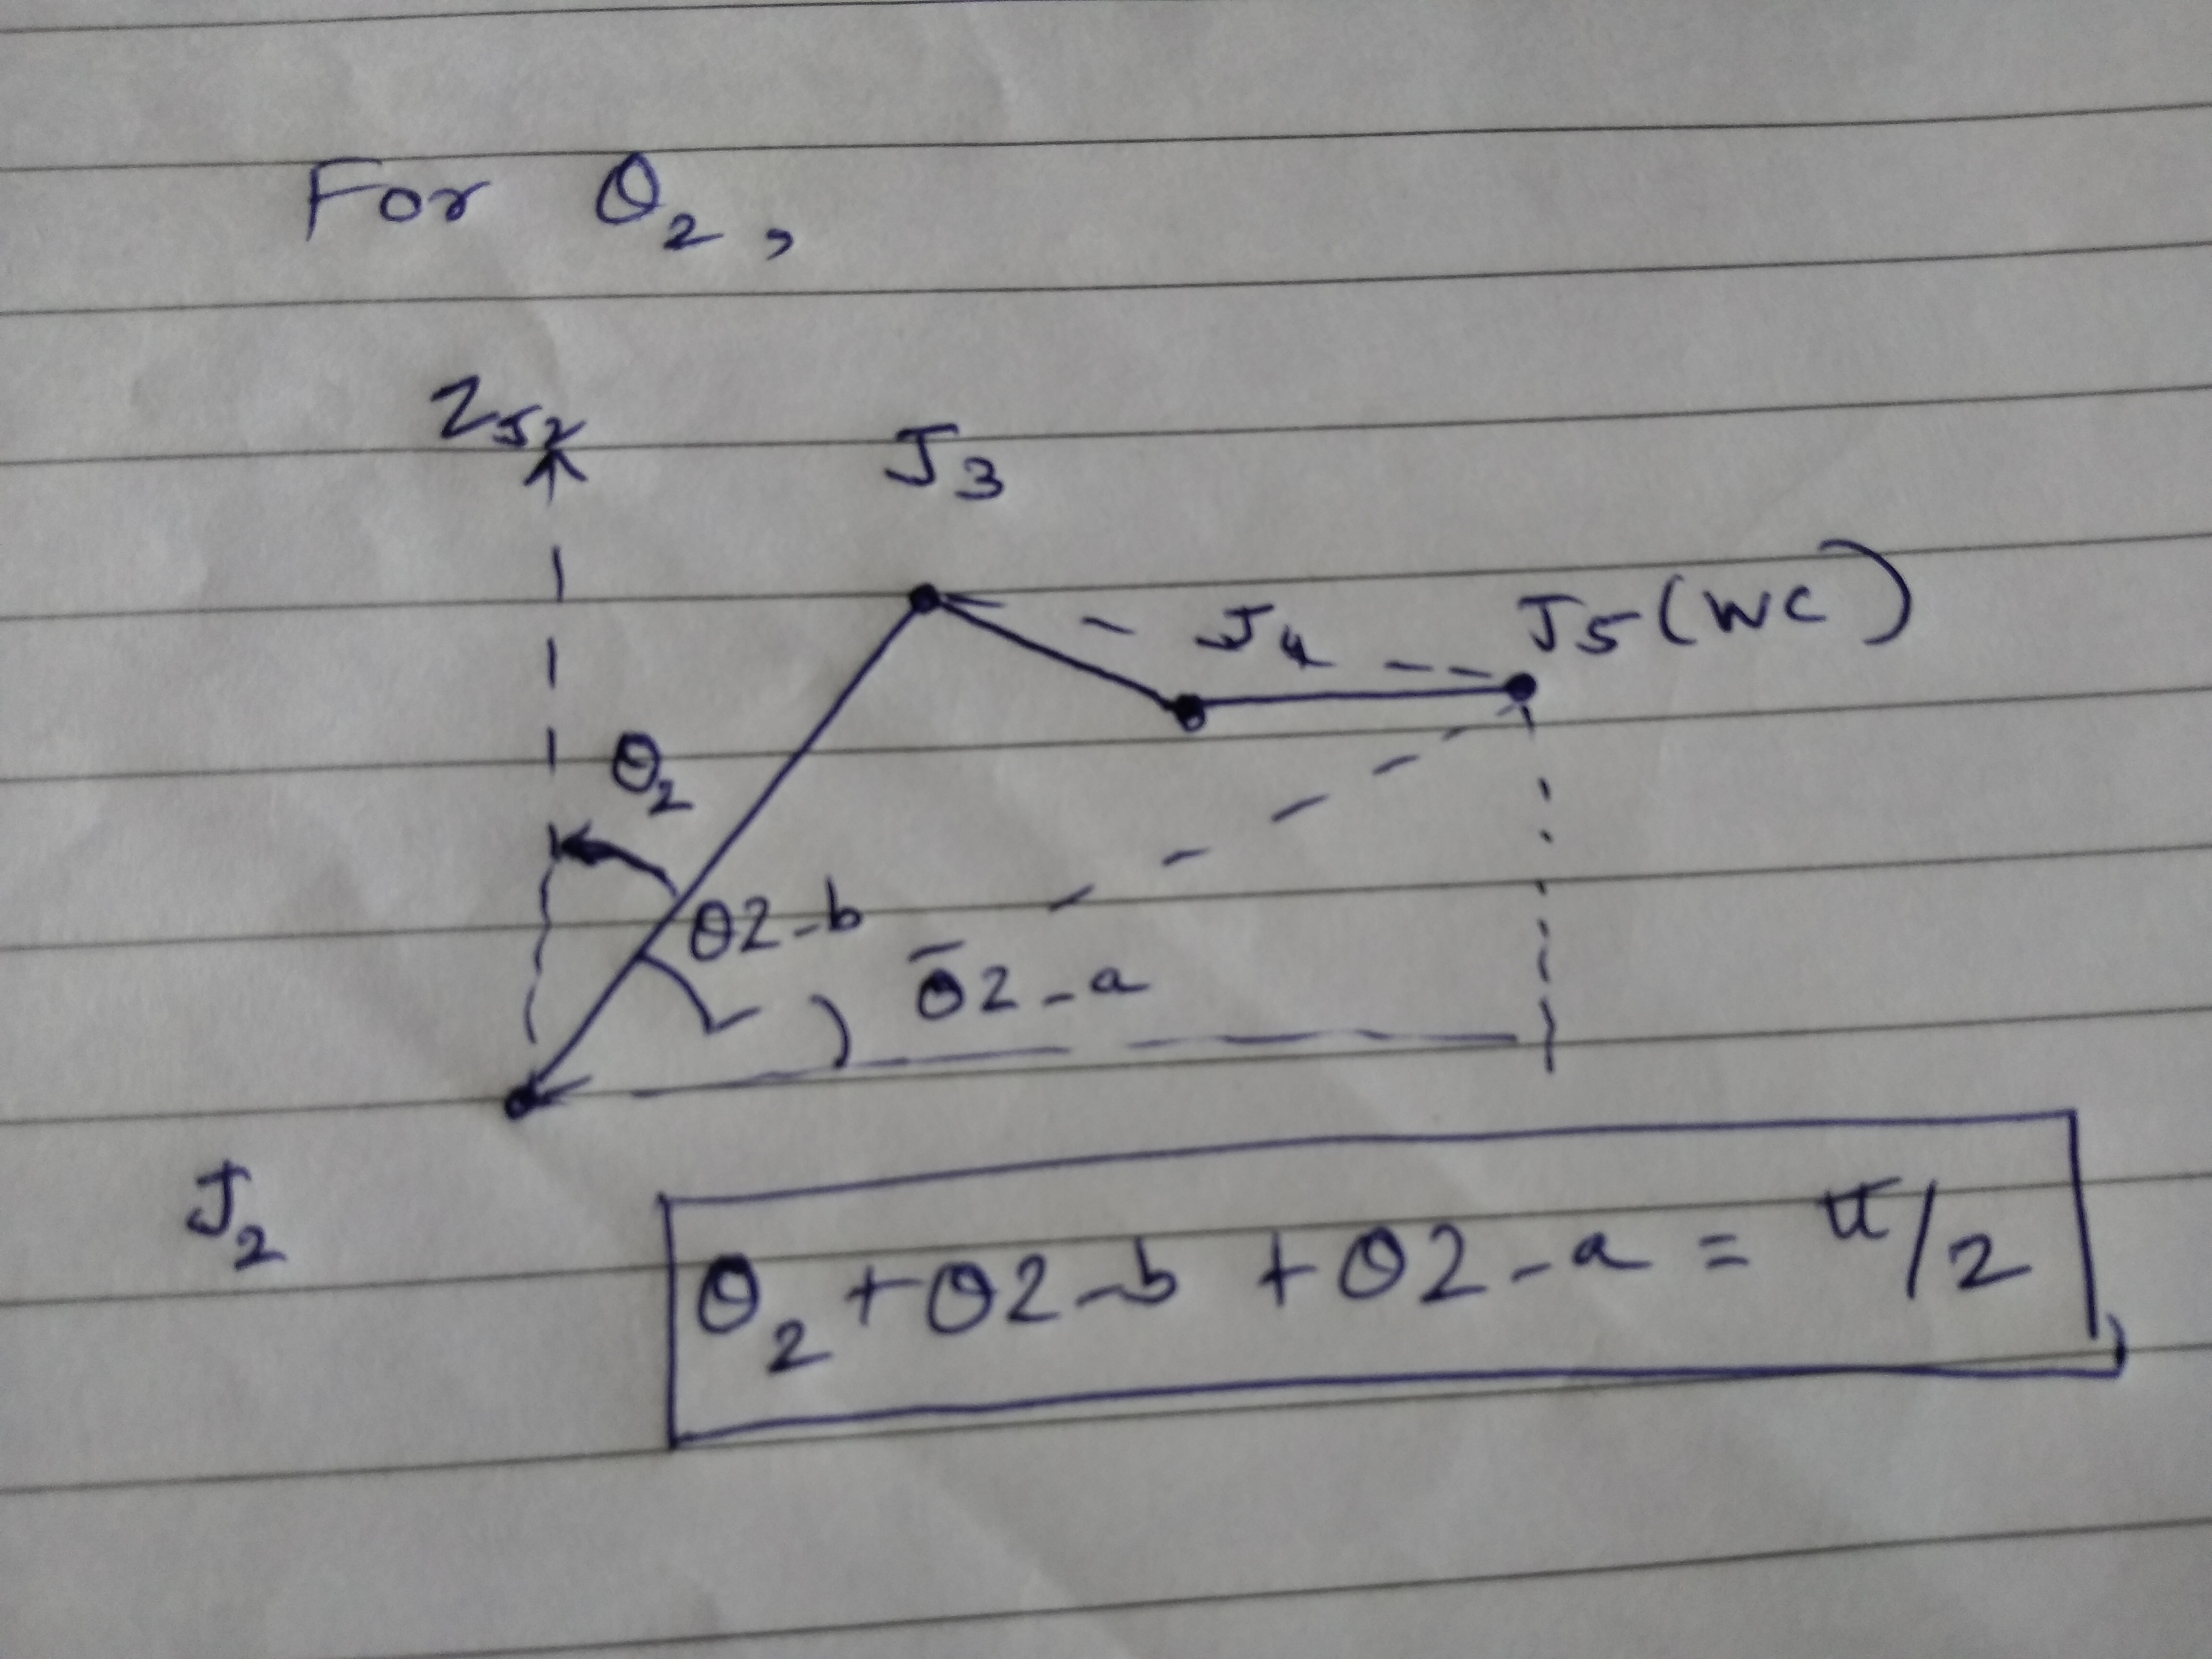 For θ₂,
Z_J2
J₃
J₄
J₅(WC)
θ₂
θ2-b
θ2-a
J₂
θ₂ + θ2-b + θ2-a = π/2